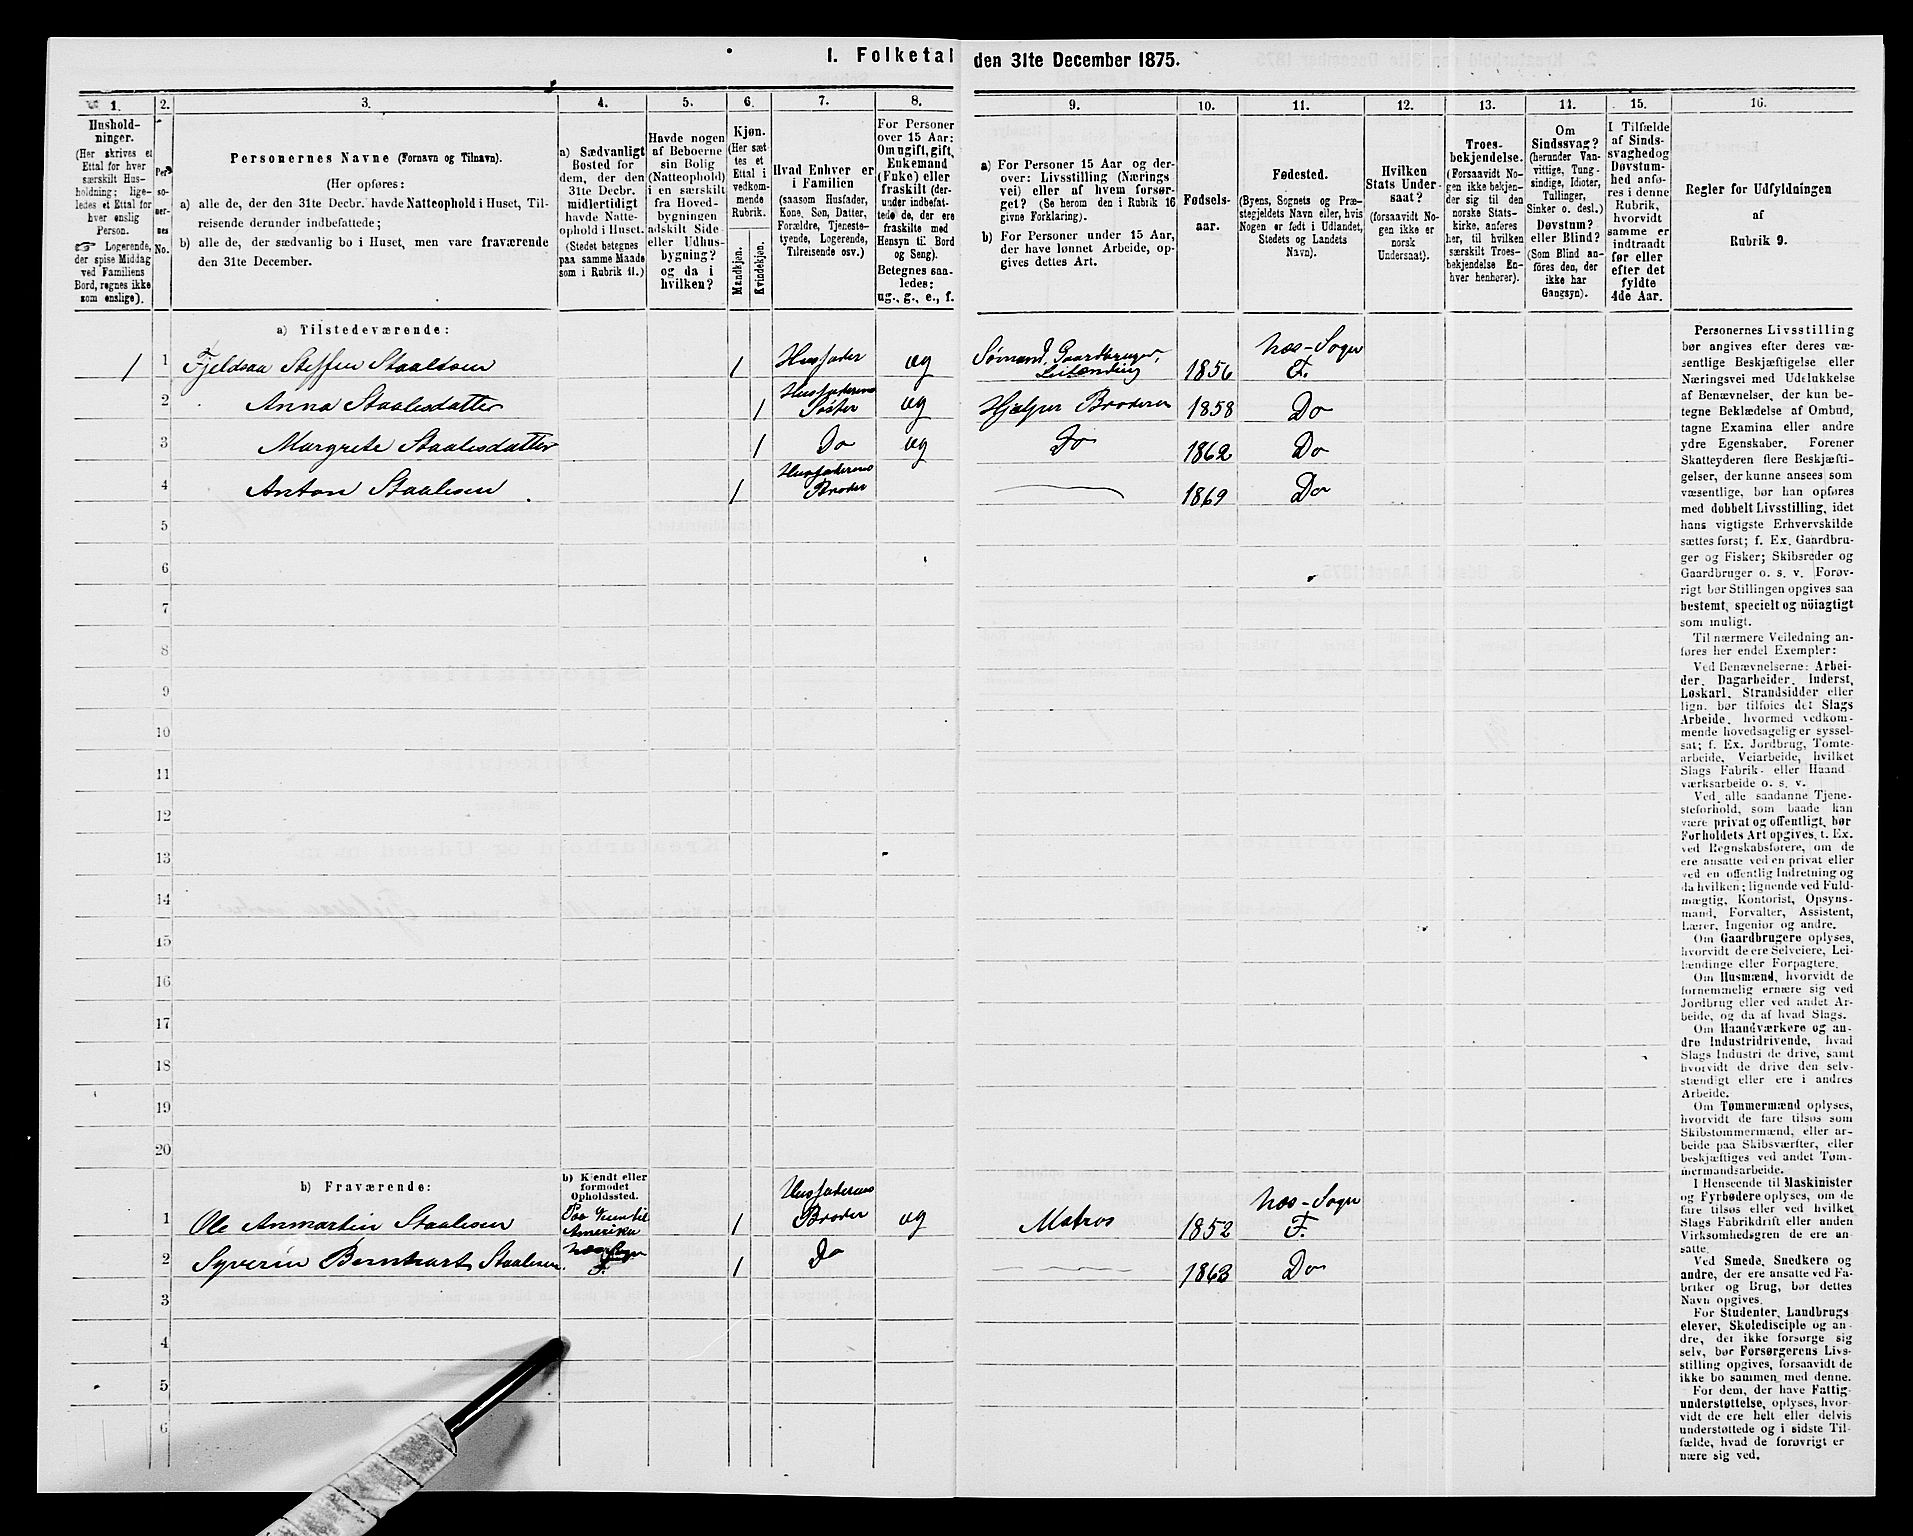 1. Folketal den 31te December 1875.
1.
Hushold-
ninger.
(Her skrives et
Ettal for hver
særskilt Hus-
holdning; lige-
ledes et Ettal for
hver enslig
Person.
☞ Logerende,
der spise Middag
ved Familiens
Bord, regnes ikke
som enslige).
2.
Per-
so-
ner-
nes
No.
3.
Personernes Navne (Fornavn og Tilnavn).
(Her opføres:
a) alle de, der den 31te Decbr. havde Natteophold i Huset, Til-
reisende derunder indbefattede;
b) alle de, der sædvanlig bo i Huset, men vare fraværende
den 31te December.
4.
a) Sædvanligt
Bosted for
dem, der den
31te Decbr.
midlertidigt
havde Natte-
ophold i Huset.
(Stedet betegnes
paa samme Maade
som i Rubrik 11.)
5.
Havde nogen
af Beboerne
sin Bolig
(Natteophold)
i en særskilt
fra Hoved-
bygningen
adskilt Side-
eller Udhus-
bygning?
og da i
hvilken?
6.
Kjøn.
(Her sæt-
tes et
Ettal i
vedkom-
mende
Rubrik.
Mandkjøn.
Kvindekjøn.
7.
Hvad Enhver er
i Familien
(saasom Husfader,
Kone, Søn, Datter,
Forældre, Tjeneste-
tyende, Logerende,
Tilreisende osv.)
8.
For Personer
over 15 Aar:
Om ugift, gift,
Enkemand
(Enke) eller
fraskilt (der-
under indbefat-
tede de, der ere
fraskilte med
Hensyn til Bord
og Seng).
Betegnes saa-
ledes:
ug., g., e., f.
9.
a) For Personer 15 Aar og der-
over: Livsstilling (Nærings
vei) eller af hvem forsør-
get? (Se herom den i Rubrik 16
givne Forklaring).
b) For Personer under 15 Aar,
der have lønnet Arbeide, op-
gives dettes Art.
10.
Fødsels-
aar.
11.
Fødested.
(Byens, Sognets og Præ-
stegjeldets Navn eller, hvis
Nogen er født i Udlandet,
Stedets og Landets
Navn).
12.
Hvilken
Stats Under-
saat?
(forsaavidt No-
gen ikke er
norsk
Undersaat).
13.
Troes-
bekjendelse.
(Forsaavidt No-
gen ikke bekjen-
der sig til den
norske Stats-
kirke, anføres
her, til hvilken
særskilt Troes-
bekjendelse En-
hver henhører).
14.
Om
Sindssvag?
(herunder Van-
vittige, Tung-
sindige, Idioter,
Tullinger,
Sinker o. desl.)
Døvstum?
eller Blind?
(Som Blind an-
føres den, der
ikke har
Gangsyn).
15.
I Tilfælde
af Sinds-
svaghed og
Døvstum-
hed anfø-
res i denne
Rubrik,
hvorvidt
samme er
indtraadt
før eller
efter det
fyldte
4de Aar.
16.
Regler for Udfyldningen
af
Rubrik 9.
a) Tilstedeværende:
1 1 Fjeldsaa Steffen Staalesen 1 Husfader ug Sømand, Gaardbruger, Leilænding 1856 Næs-Sogn F.
2 Anna Staalesdatter 1 Husfaderens Søster ug Hjælper Broderen 1858 Do
3 Margrete Staalesdatter 1 Do ug Do 1862 Do
4 Anton Staalesen 1 Husfaderens Broder 1869 Do
5
6
7
8
9
10
11
12
13
14
15
16
17
18
19
20
b) Fraværende:
b) Kjendt eller
formodet
Opholdssted.
1 Ole Anmartin Staalesen Paa Reise til Amerika 1 Husfaderens Broder ug Matros 1852 Næs-Sogn F.
2 Syverin Bernhart Staalesen Næs Sogn F. 1 Do 1863 Do
3
4
5
6
Personernes Livsstilling
bør angives efter deres væ-
sentlige Beskjæftigelse eller
Næringsvei med Udelukkelse
af Benævnelser, der kun be-
tegne Beklædelse af Ombud,
tagne Examina eller andre
ydre Egenskaber. Forener
Skatteyderen flere Beskjæfti-
gelser, der kunne ansees som
væsentlige, bør han opføres
med dobbelt Livsstilling, idet
hans vigtigste Erhvervskilde
sættes først; f. Ex. Gaardbru-
ger og Fisker; Skibsreder og
Gaardbruger o. s. v. Forøv-
rigt bør Stillingen opgives saa
bestemt, specielt og nöiagtigt
som muligt.
Til nærmere Veiledning an-
føres her endel Exempler:
Ved Benævnelserne: Arbei-
der, Dagarbeider, Inderst,
Løskarl, Strandsidder eller
lign. bør tilføies det Slags
Arbeide, hvormed vedkom-
mende hovedsagelig er syssel-
sat; f. Ex. Jordbrug, Tomte-
arbeide, Veiarbeide, hvilket
Slags Fabrik- eller Haand
værksarbeide o. s. v.
Ved alle saadanne Tjene-
steforhold, som baade kan
være privat og offentligt, bør
Forholdets Art opgives, t. Ex.
ved Regnskabsførere, om de
ere ansatte ved en privat eller
ved en offentlig Indretning og
da hvilken; lignende ved Fuld-
mægtig, Kontorist, Opsyns-
mand, Forvalter, Assistent,
Lærer, Ingeniør og andre.
Om Gaardbrugere oplyses,
hvorvidt de ere Selveiere, Lei-
lændinge eller Forpagtere.
Om Husmænd, hvorvidt de
fornemmelig ernære sig ved
Jordbrug eller ved andet Ar-
beide, og da af hvad Slags.
Om Haandværkere og an-
dre Industridrivende, hvad
Slags Industri de drive, samt
hvorvidt de drive den selv-
stændigt eller ere i andres
Arbeide.
Om Tømmermænd oplyses,
hvorvidt de fare tilsøs som
Skibstømmermænd, eller ar-
beide paa Skibsværfter, eller
beskjæftiges ved andet Tøm-
mermandsarbeide.
I Henseende til Maskinister
og Fyrbødere oplyses, om de
fare tilsøs eller ved hvilket
Slags Fabrikdrift eller anden
Virksomhedsgren de ere an-
satte.
Ved Smede, Snedkere og
andre, der ere ansatte ved Fa-
briker og Brug, bør dettes
Navn opgives.
For Studenter, Landbrugs
elever, Skoledisciple og an-
dre, der ikke forsørge sig
selv, bør Forsørgerens Livs-
stilling opgives, forsaavidt de
ikke bo sammen med denne.
For dem, der have Fattig-
understøttelse, oplyses, hvor-
vidt de ere helt eller delvis
understøttede og i sidste Til-
fælde, hvad de forøvrigt er
nære sig ved.